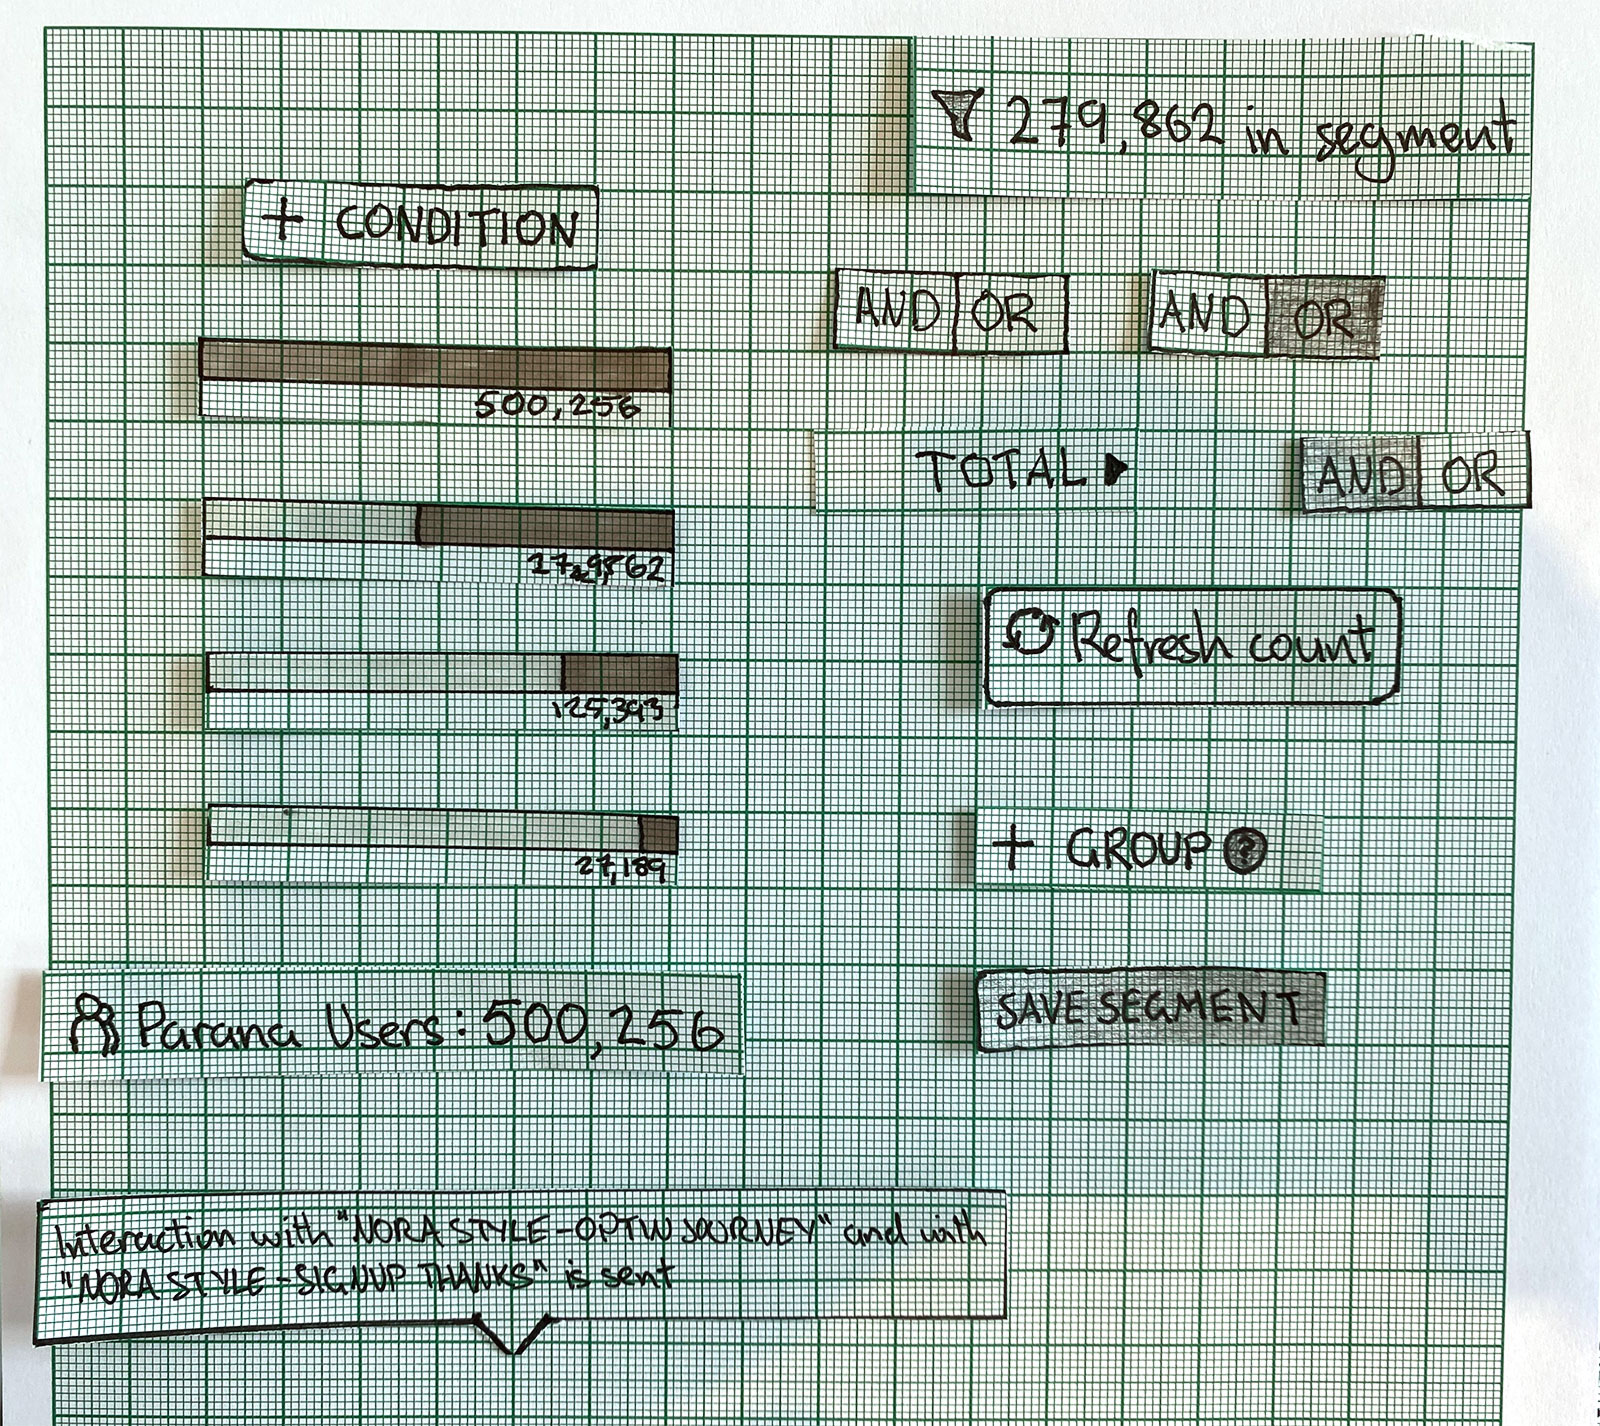 279,862 in segment
+ CONDITION
AND OR
AND OR
500,256
TOTAL
AND OR
Refresh count
125,393
+ GROUP ?
27,189
Parana Users: 500,256
SAVE SEGMENT
Interaction with "NORA STYLE-OPTIN JOURNEY" and with
"NORA STYLE-SIGNUP THANKS" is sent